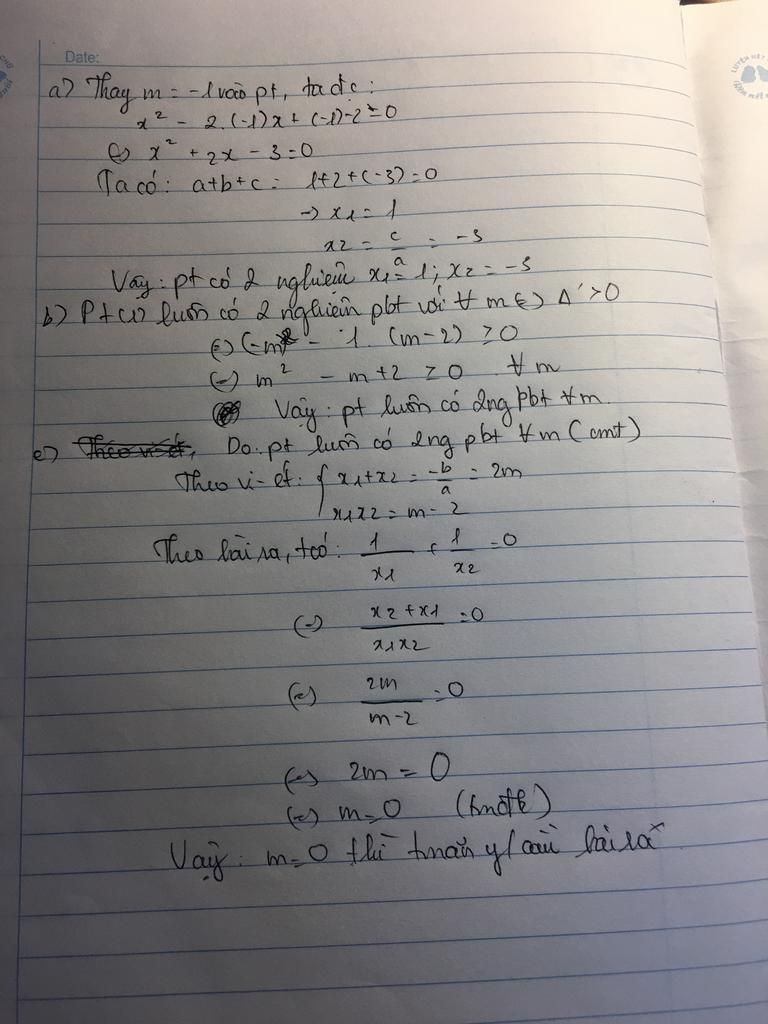 Date:
a) Thay m = -1 vào pt, ta đc:
x² - 2.(-1)x + (-1)-2 = 0
(=) x² + 2x - 3 = 0
Ta có: a+b+c = 1+2+(-3) = 0
-> x1 = 1
x2 = c/a = -3
Vậy: pt có 2 nghiệm x1 = 1; x2 = -3
b) Pt(1) luôn có 2 nghiệm pbt với ∀ m (=) Δ' > 0
(=) (-m)² - 1. (m-2) ≥ 0
(=) m² - m + 2 ≥ 0 ∀ m
Vậy: pt luôn có 2ng pbt ∀m.
c) Do: pt luôn có 2ng pbt ∀m (cmt)
Theo vi-ét: { x1+x2 = -b/a = 2m
x1x2 = m - 2
Theo bài ra, t có: 1/x1 + 1/x2 = 0
(=) x2+x1/x1x2 = 0
(=) 2m/m-2 = 0
(=) 2m = 0
(=) m = 0
Vậy: m = 0 thì tmãn y/cầu bài ra